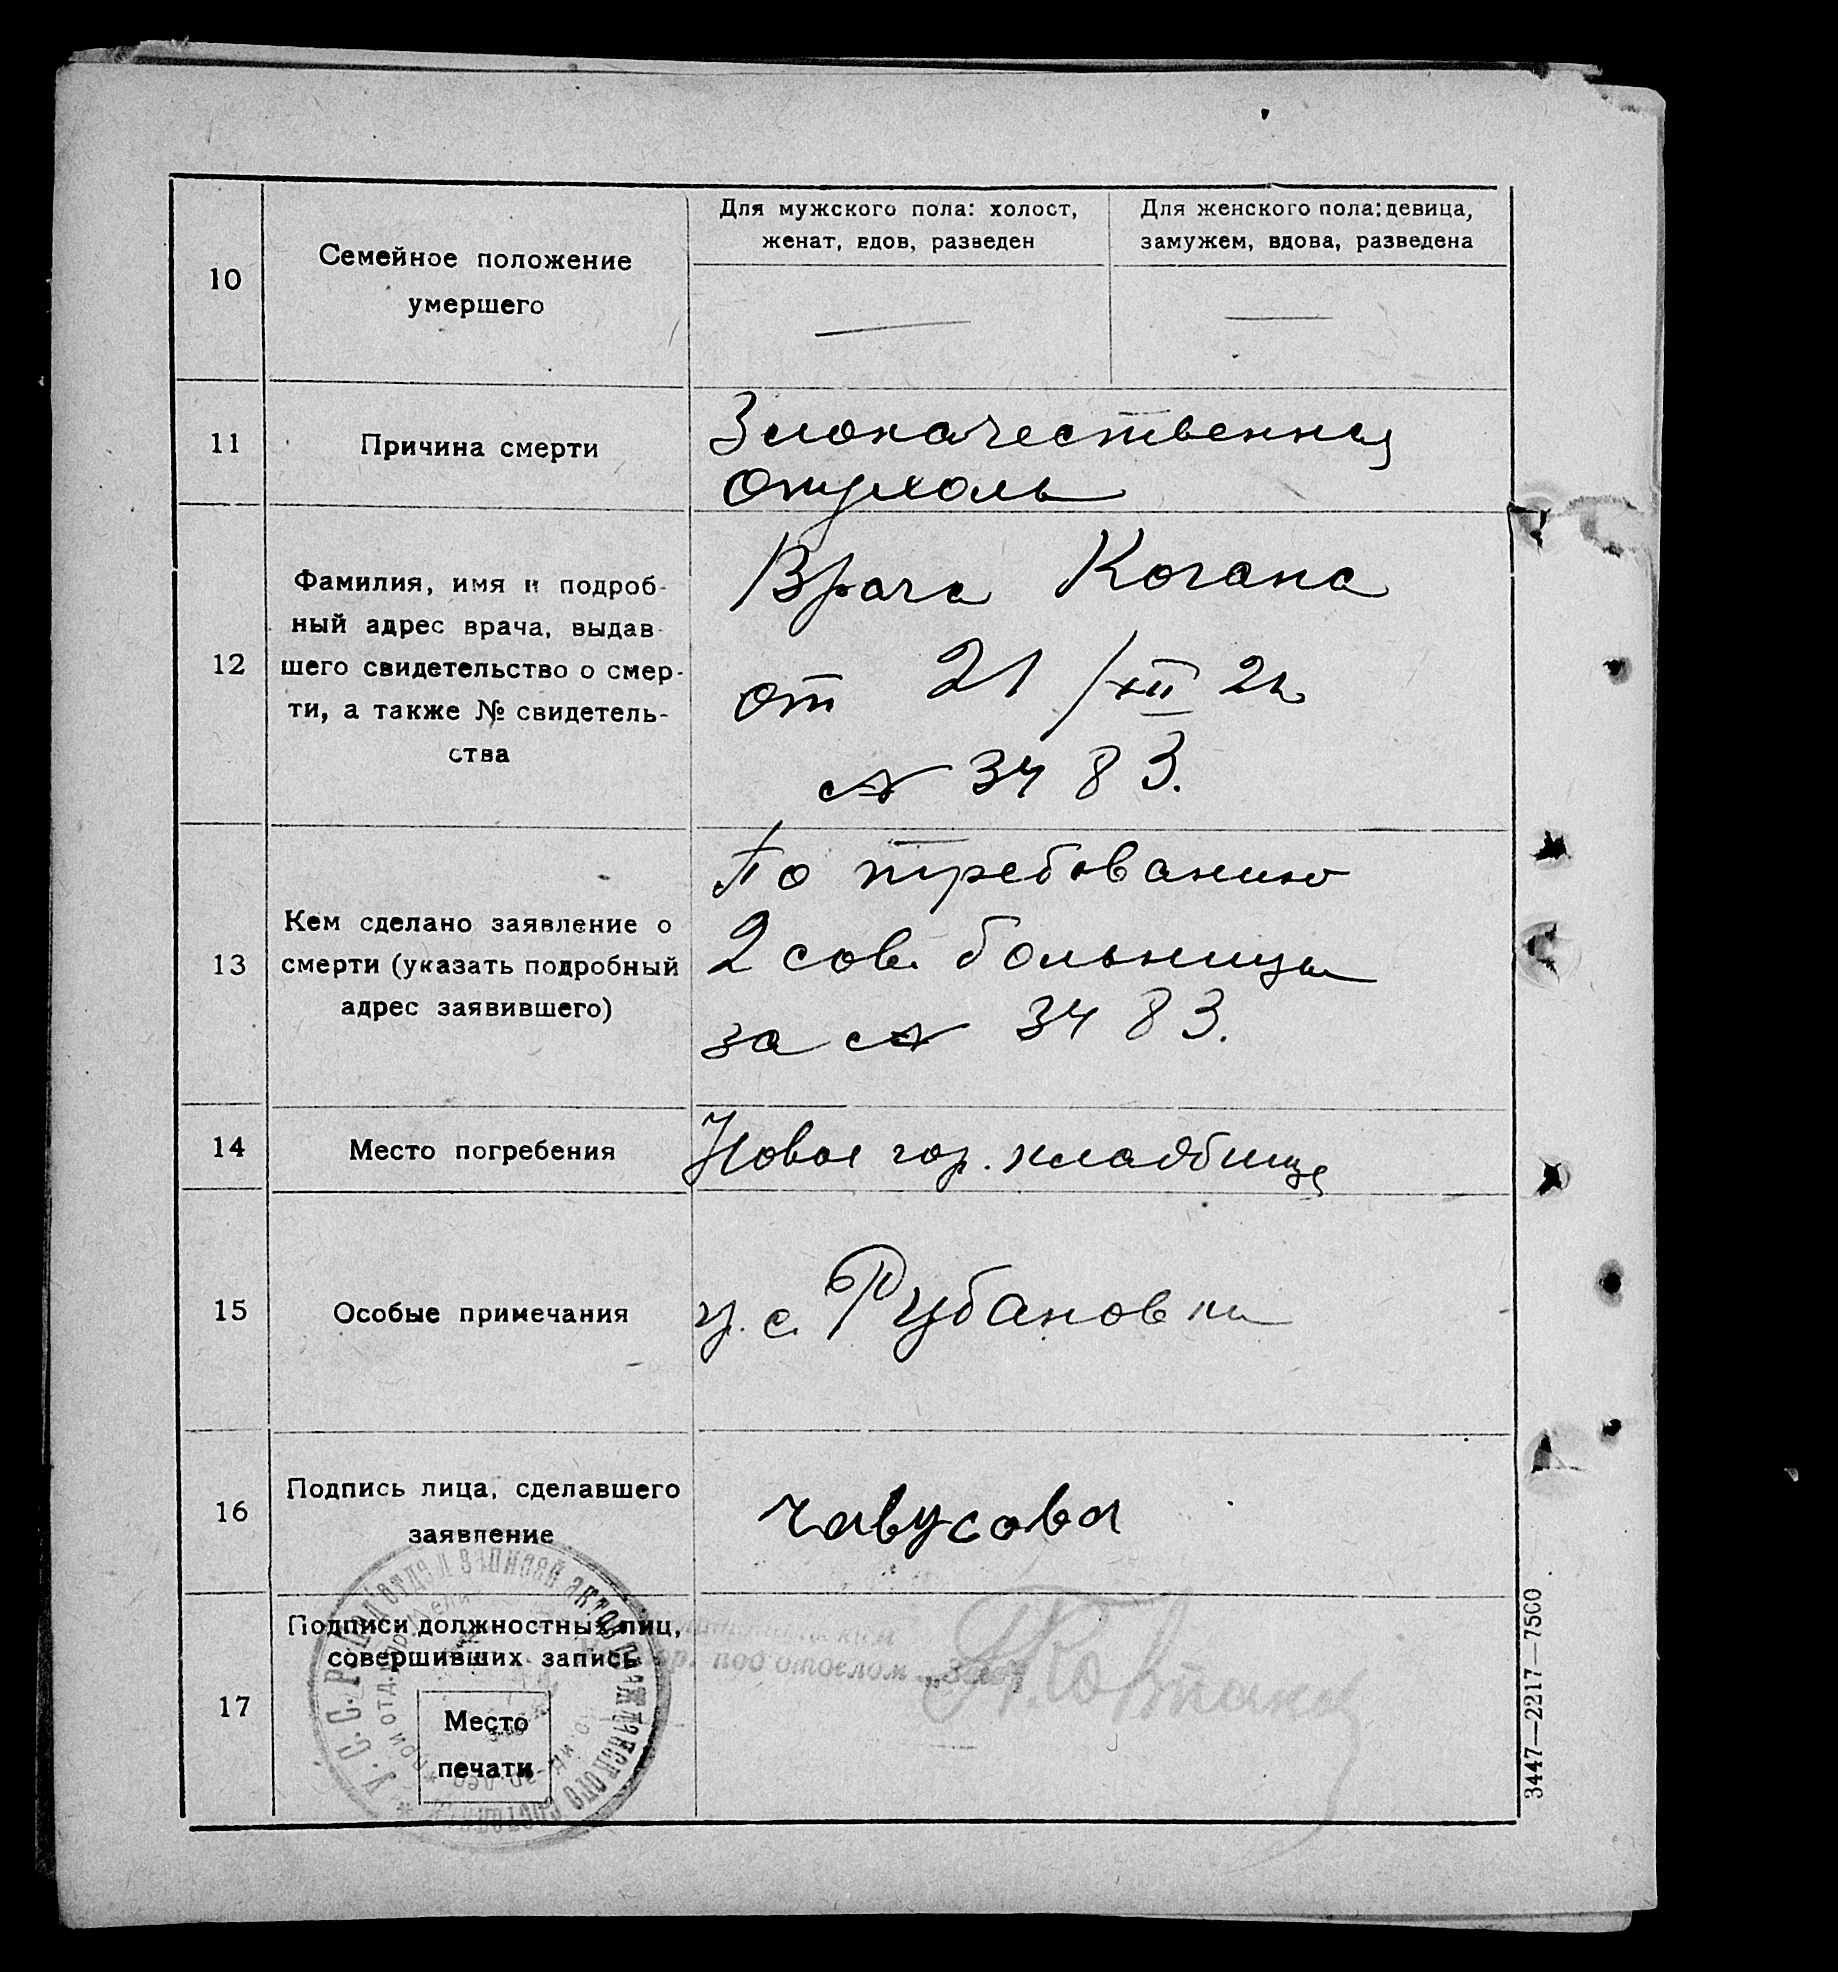 10
Семейное положение
умершего
Для мужского пола: холост,
женат, вдов, разведен
Для женского пола: девица,
замужем, вдова, разведена
—
—
11
Причина смерти
Злокачественная
опухоль
12
Фамилия, имя и подроб-
ный адрес врача, выдав-
шего свидетельство о смер-
ти, а также № свидетель-
ства
Врача Когана
от 21/XII 22
№ 3483.
13
Кем сделано заявление о
смерти (указать подробный
адрес заявившего)
По требованию
2 сов. больницы
за № 3483.
14
Место погребения
Новое гор. кладбище
15
Особые примечания
у. с. Рубановки
16
Подпись лица, сделавшего
заявление
Чавусова
17
Подписи должностных лиц,
совершивших запись
Место
печати
У.С.С.Р. Подотдел записей актов гражданского состояния
под отделом
3447—2217—7500